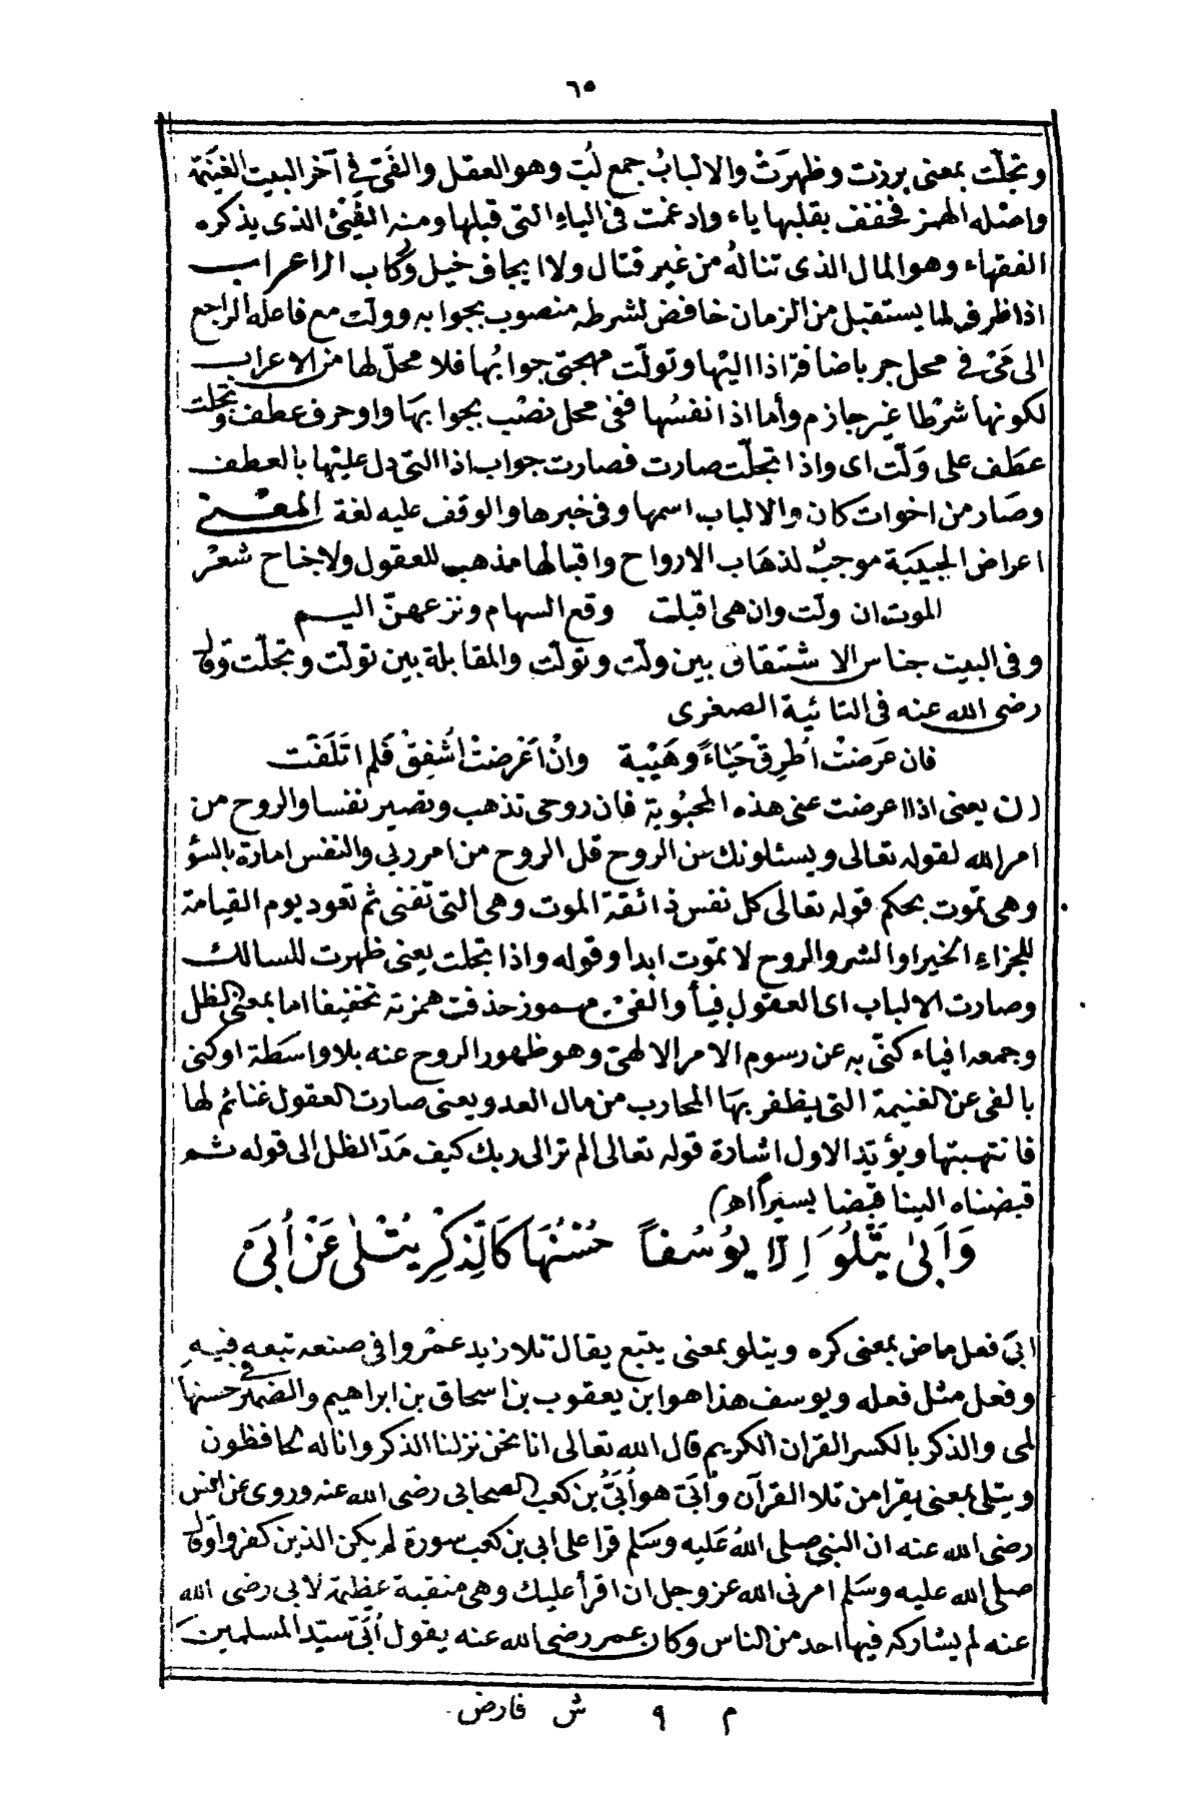 ٦٥
وتجلّت بمعنى برزت وظهرَتْ والالبابُ جمع لُبّ وهو العقل والفَيّ في آخر البيت الغنَيمة
واصْله الهمز فخفف بقلبها ياء وادغمت في الياء التي قبلها ومنه الفَيْئُ الذي يذكره
الفقهاء وهو المال الذي تنالهُ من غير قتال ولا ايجاف خيل وركاب الاعراب
اذا ظرف لما يستقبل من الزمان خافض لشرطه منصوب بجوابه وولّت مع فاعله الراجع
الى مَيّ في محل جر باضافة اذا اليها وتولّت مهجتي جوابُها فلا محلّ لها من الاعراب
لكونها شرْطا غير جازم وأما اذا نفسُها ففي محل نصْب بجوابهَا واو حرف عطف وتجلت
عطَف على وَلّت اى واذا تجلّت صارت فصارت جواب اذا التي دل عليْها بالعطف
وصَار من اخوات كان والالباب اسمها وفي خبرها والوقف عليه لغة المعْنى
اعراض الحبيَبة موجبٌ لذهَاب الارواح واقبالها مذهب للعقول ولاجناح شعْر
الموت ان ولّت وان هى اقبلت وقع السهام ونزعهنّ اليم
وفى البيت جناس الاشتقاق بين ولّت وتولّت والمقابلة بين تولّت وتجلّت وقال
رضي الله عنه في التائية الصغرى
فان عرَضتْ اُطرِقْ حَيَاءً وهَيْبة وانْ اَعْرضتْ اُشفِقْ فَلم اتَلَفّت
(ن يعنى اذا اعرضت عنى هذه المحبُوبة فان روحى تذهب وتصير نفسا والروح من
امر الله لقوله تعالى ويسئلونك عن الروح قل الروح من امر ربي والنفس امارة بالسؤ
وهى تموت بحكم قوله تعالى كل نفس ذائقة الموت وهى التي تفنى ثم تعود يوم القيامة
للجزاء الخير او الشر والروح لا تموت ابدا وقوله واذا تجلت يعنى ظهرت للسالك
وصارت الالباب اى العقول فيأ والفئ مهموز حذفت همزته تخفيفا اما بمعنى الظل
وجمعه افياء كنّى به عن رسوم الامر الالهيّ وهو ظهور الروح عنه بلا واسَطة او كنى
بالفى عن الغنيمة التي يظفر بهَا المحارب من مال العدو يعنى صارت العقول غنائم لها
فانتهبتها ويؤيّد الاول اشارة قوله تعالى الم تر الى ربك كيف مَدّ الظل الى قوله ثم
قبضناه الينا قبضا يسيرًا اهـ)
وَاَبىٰ يَتْلُوَ اِلّا يُوسُفاً حُسْنُهَا كَالذِّكِرِ يُتْلىٰ عَنْ اُبَيّ
ابىَ فعل ماض بمعنى كره ويتلو بمعنى يتبع يقال تلا زيد عمْروا في صنعه تبعه فيه
وفعل مثل فعله ويوسف هذا هو ابن يعقوب بن اسحاق بن ابراهيم والضمير في حسنها
لمى والذكر بالكسر القران الكريم قال الله تعالى انا نحن نزلنا الذكر وانا له لحافظون
ويتلى بمعنى يقرا من تلا القرآن وأبَيّ هو أُبَيُّ بن كعب الصحابي رضي الله عنه وروى عن انس
رضي الله عنه ان النبي صلى اللهُ عَليه وسَلم قرا على ابى بن كعب سورة لم يكن الذين كفروا وقال
صلى الله عليه وسَلم امرنى الله عز وجل ان اقرأ عليك وهى منقبة عظيمة لابى رضي الله
عنه لم يشاركه فيها احد من الناس وكان عمر رضي الله عنه يقول أُبَيّ سيّد المسلمين
م ٩ ش فارض